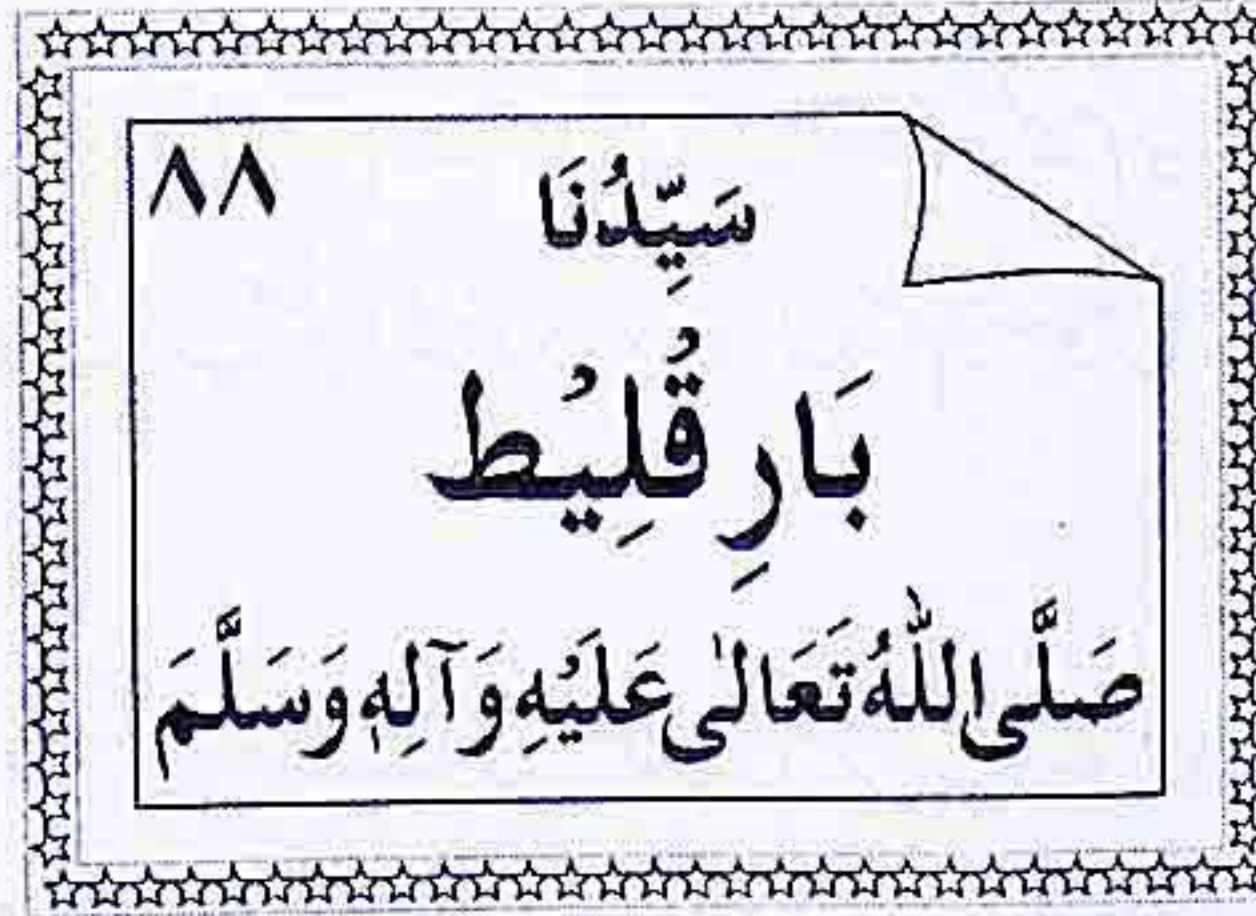 ٨٨
سَيِّدُنَا
بَارِ قُلِيْط
صَلَّى اللّٰهُ تَعَالٰى عَلَيْهِ وَآلِهٖ وَسَلَّمَ